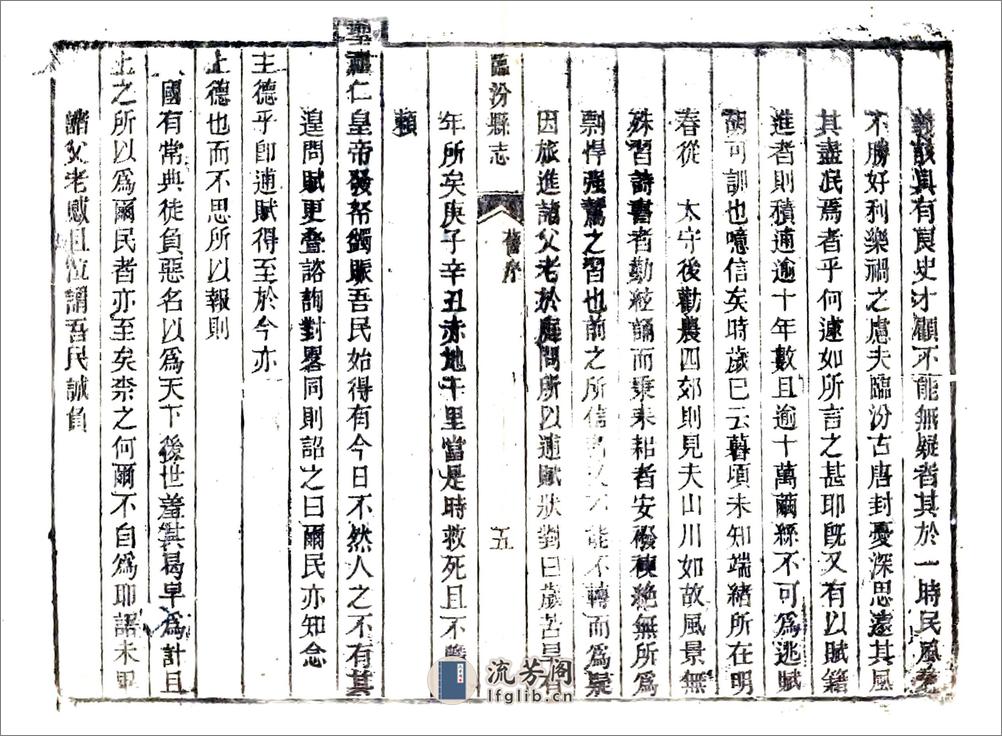 義該具有良史才顧不能無疑者其於一時民風
不勝好利樂禍之慮夫臨汾古唐封憂深思遠其風
其盡泯焉者乎何遽如所言之甚耶既又有以賦籍
進者則積逋逾十年數且逾十萬繭絲不可為逃賦
胡可訓也噫信矣時歲已云暮頃未知端緒所在明
春從 太守後勸農四郊則見夫山川如故風景無
殊習詩書者勤絃誦而秉耒耜者安襏襫絶無所為
剽悍强騺之習也前之所信者又不能不轉而為疑
因旅進諸父老於庭問所以逋賦狀對曰歲苦旱有
臨汾縣志
舊序
五
年所矣庚子辛丑赤地千里當是時救死且不贍
賴
聖祖仁皇帝發帑蠲賑吾民始得有今日不然人之不有其
遑問賦更叠諮詢對畧同則詔之曰爾民亦知念
主德乎卽逋賦得至於今亦
上德也而不思所以報則
國有常典徒負惡名以為天下後世羞其曷早為計且
上之所以為爾民者亦至矣柰之何爾不自為耶語未畢
諸父老感且泣謂吾民誠負
流芳阁
lfglib.cn